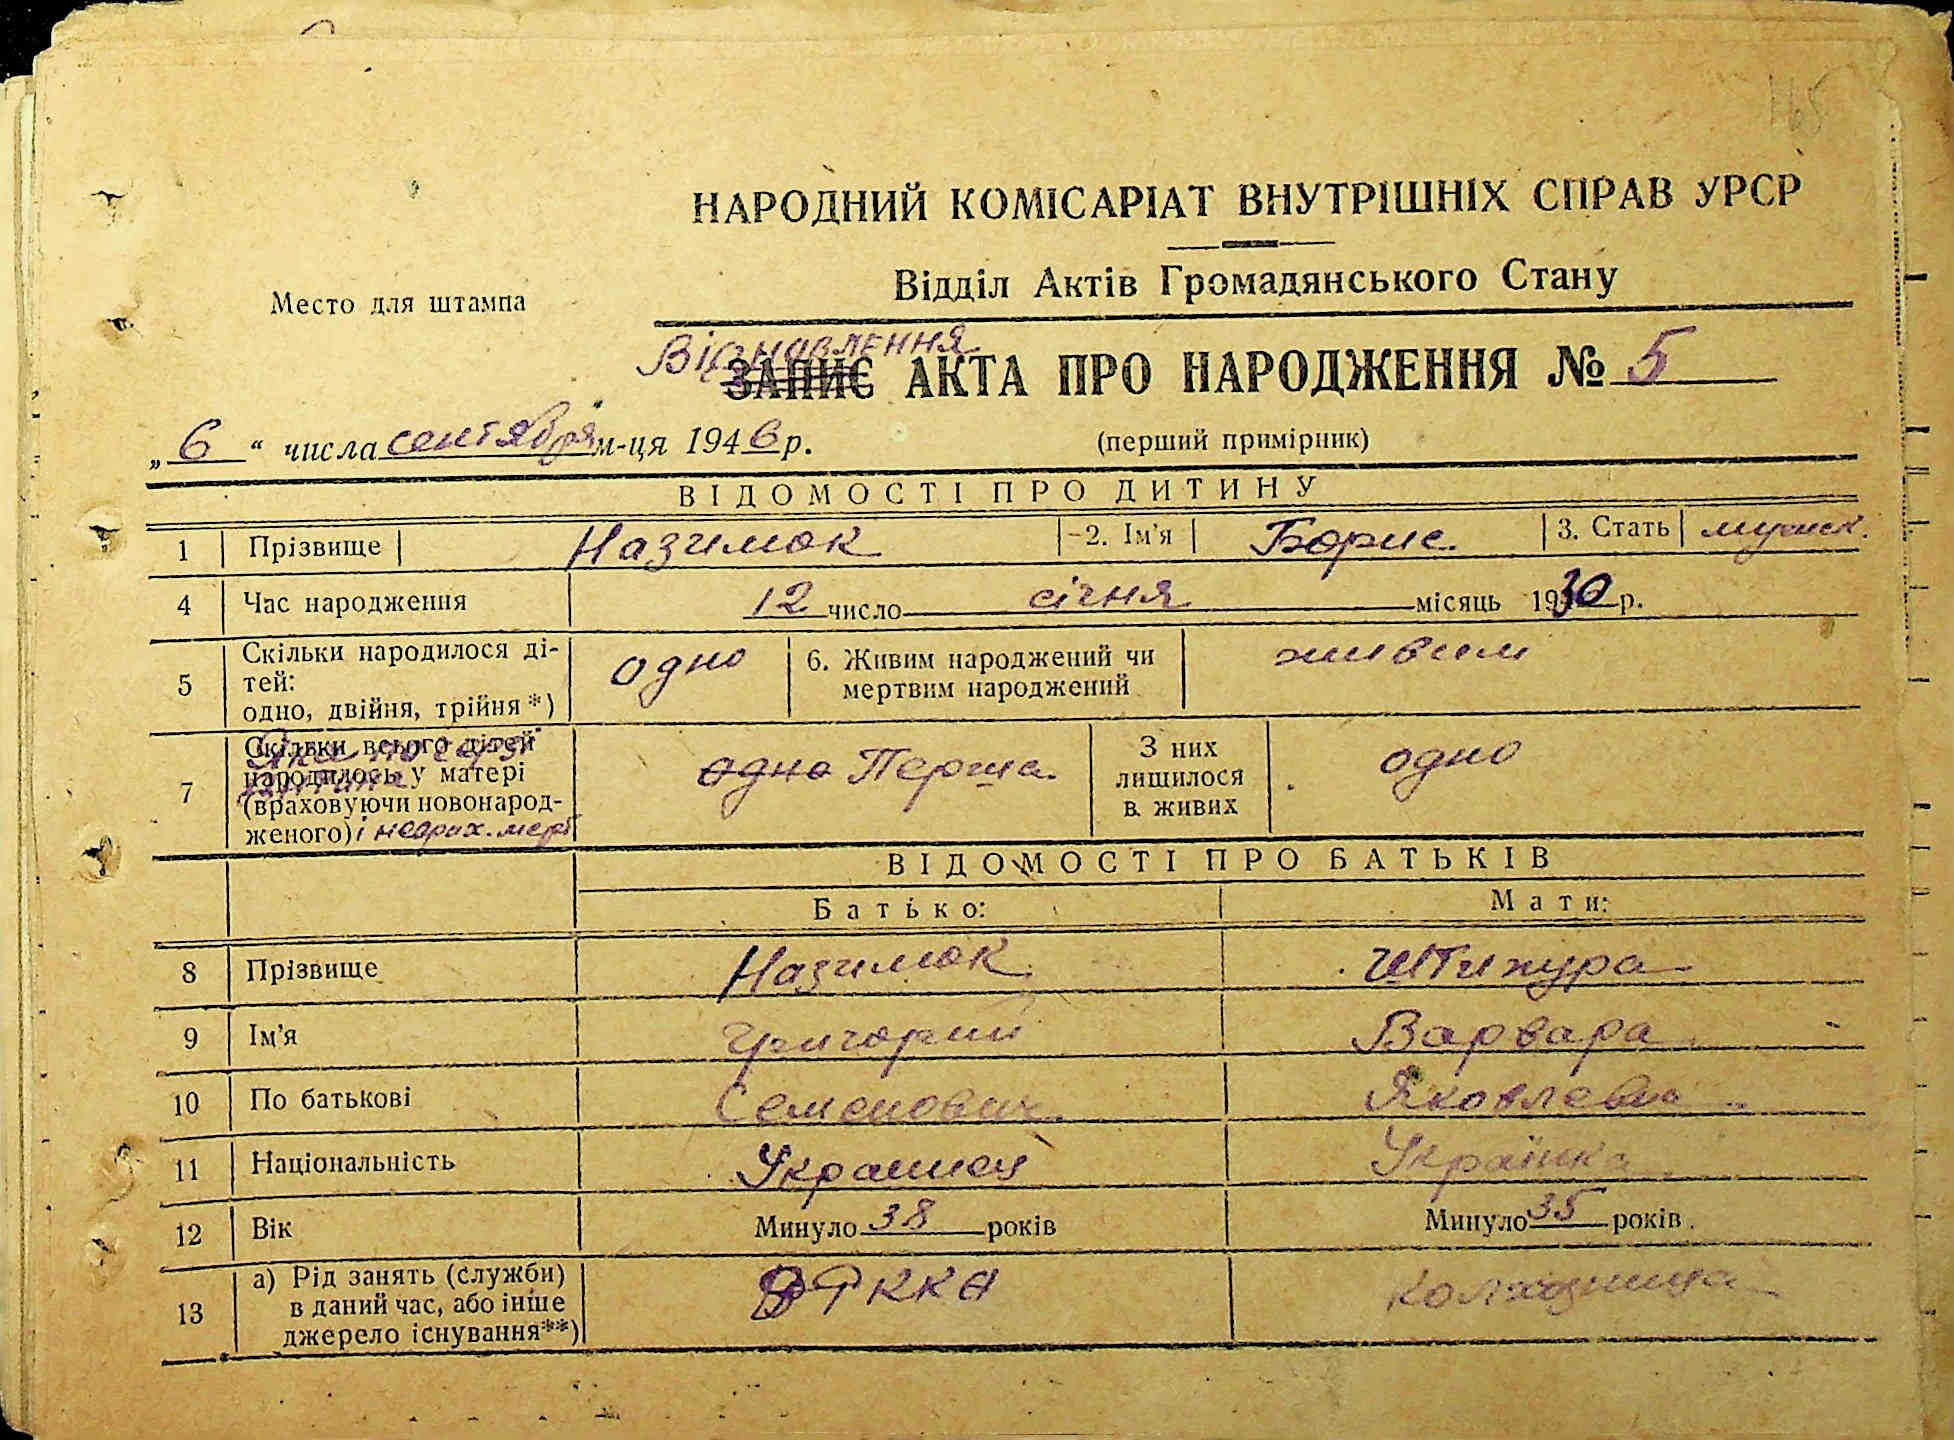 165
НАРОДНИЙ КОМІСАРІАТ ВНУТРІШНІХ СПРАВ УРСР
Відділ Актів Громадянського Стану
Место для штампа
Відновлення
ЗАПИС АКТА ПРО НАРОДЖЕННЯ № 5
„6“ числа сентября м-ця 1946 р. (перший примірник)
ВІДОМОСТІ ПРО ДИТИНУ
1 Прізвище Назимок 2. Ім'я Борис 3. Стать мужск.
4 Час народження 12 число січня місяць 1930 р.
5 Скільки народилося ді-
тей:
одно, двійня, трійня *) одно 6. Живим народжений чи
мертвим народжений живим
7 Скільки всього дітей
народилось у матері
(враховуючи новонарод-
женого) одно Перша З них
лишилося
в живих одно
ВІДОМОСТІ ПРО БАТЬКІВ
Батько: Мати:
8 Прізвище Назимок Штижура
9 Ім'я Григорий Варвара
10 По батькові Семенович Яковлевна
11 Національність Украинец Українка
12 Вік Минуло 38 років Минуло 35 років.
13 а) Рід занять (служби)
в даний час, або інше
джерело існування**) РККА Колхозница